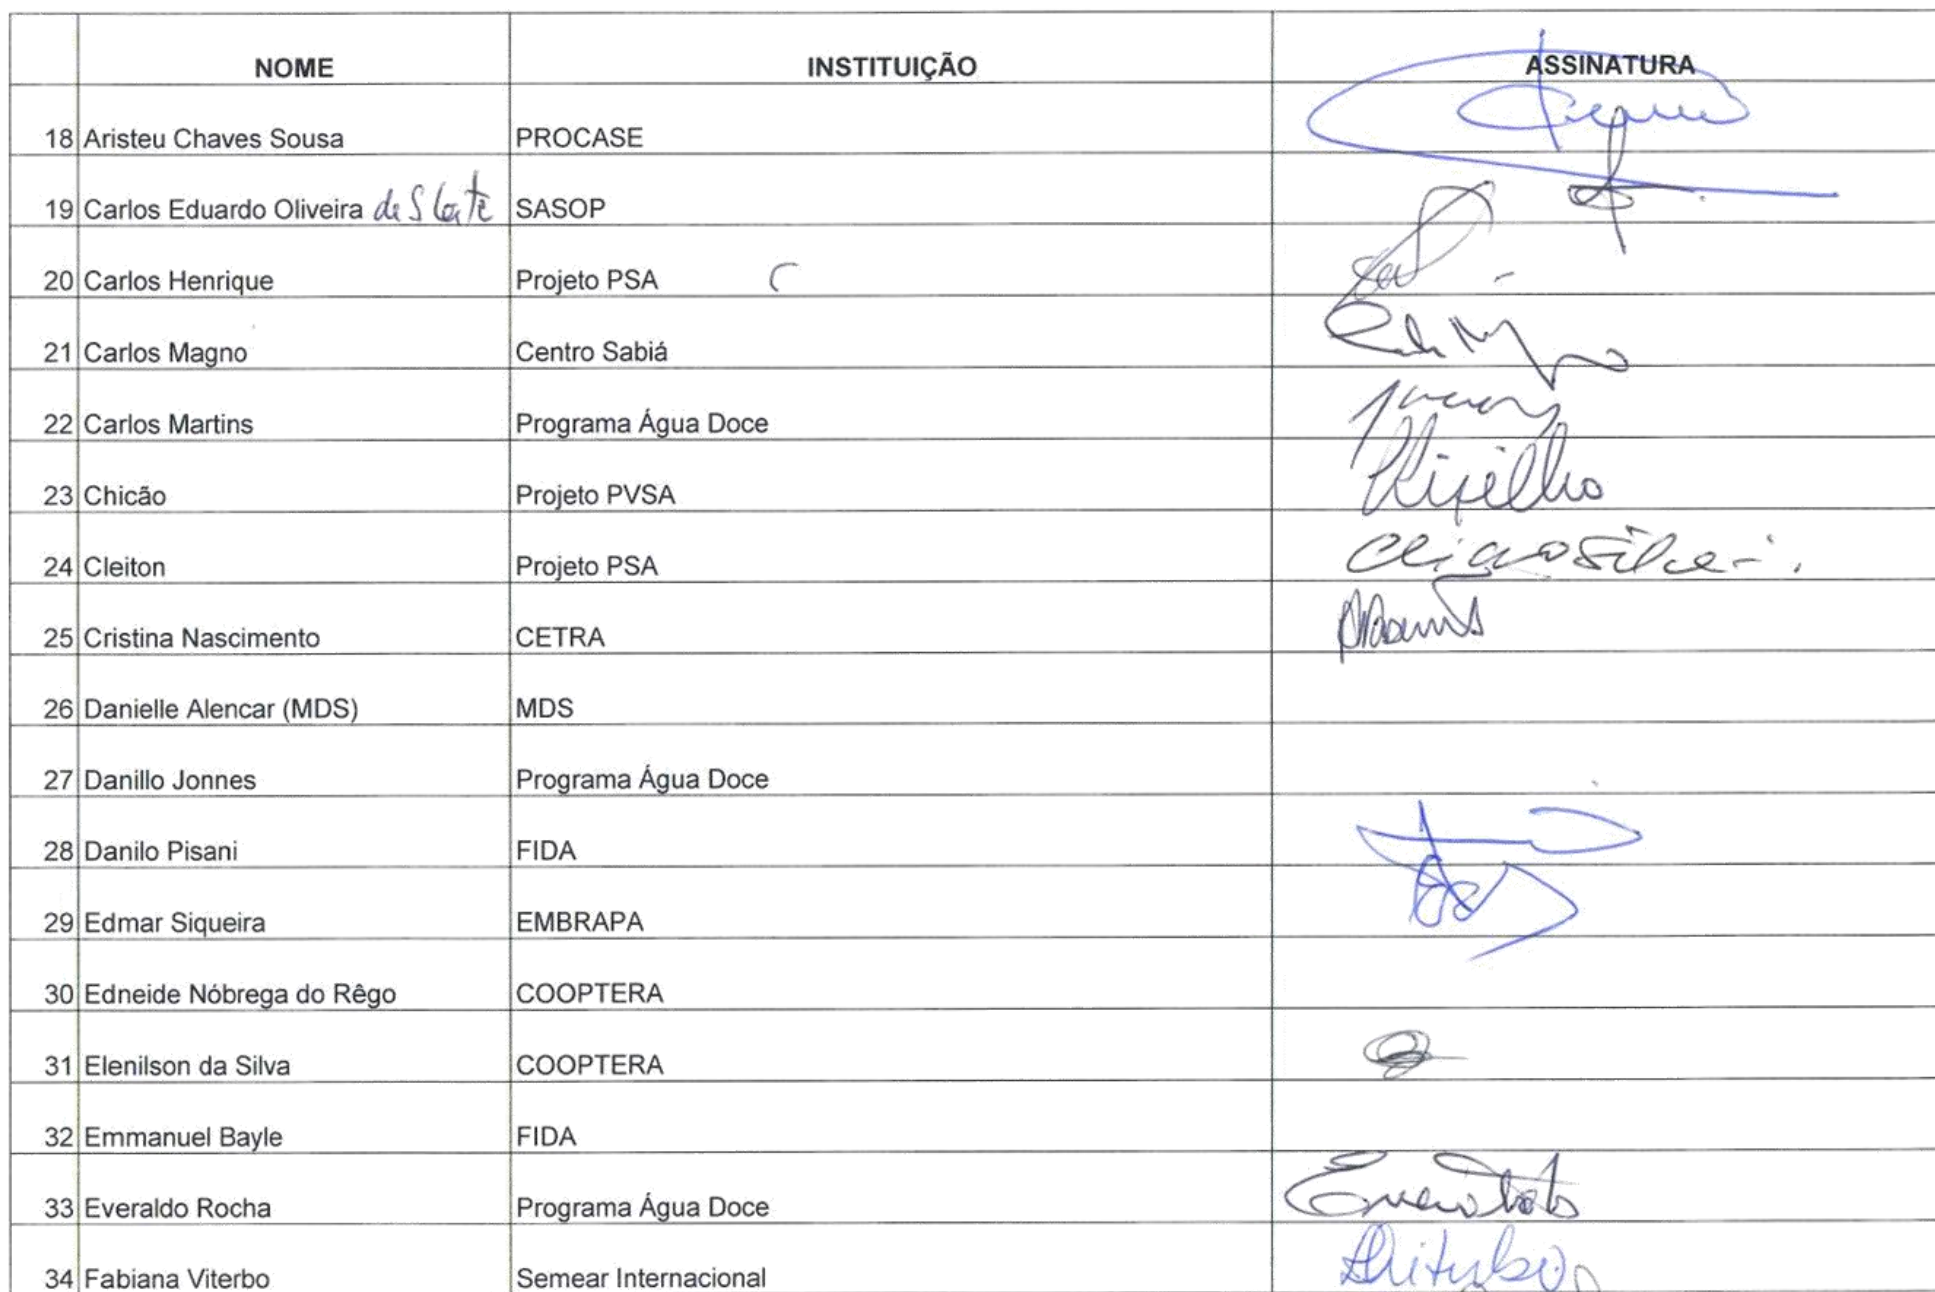 NOME INSTITUIÇÃO ASSINATURA
18 Aristeu Chaves Sousa PROCASE
19 Carlos Eduardo Oliveira de S SASOP
20 Carlos Henrique Projeto PSA
21 Carlos Magno Centro Sabiá
22 Carlos Martins Programa Água Doce
23 Chicão Projeto PVSA
24 Cleiton Projeto PSA
25 Cristina Nascimento CETRA
26 Danielle Alencar (MDS) MDS
27 Danillo Jonnes Programa Água Doce
28 Danilo Pisani FIDA
29 Edmar Siqueira EMBRAPA
30 Edneide Nóbrega do Rêgo COOPTERA
31 Elenilson da Silva COOPTERA
32 Emmanuel Bayle FIDA
33 Everaldo Rocha Programa Água Doce
34 Fabiana Viterbo Semear Internacional